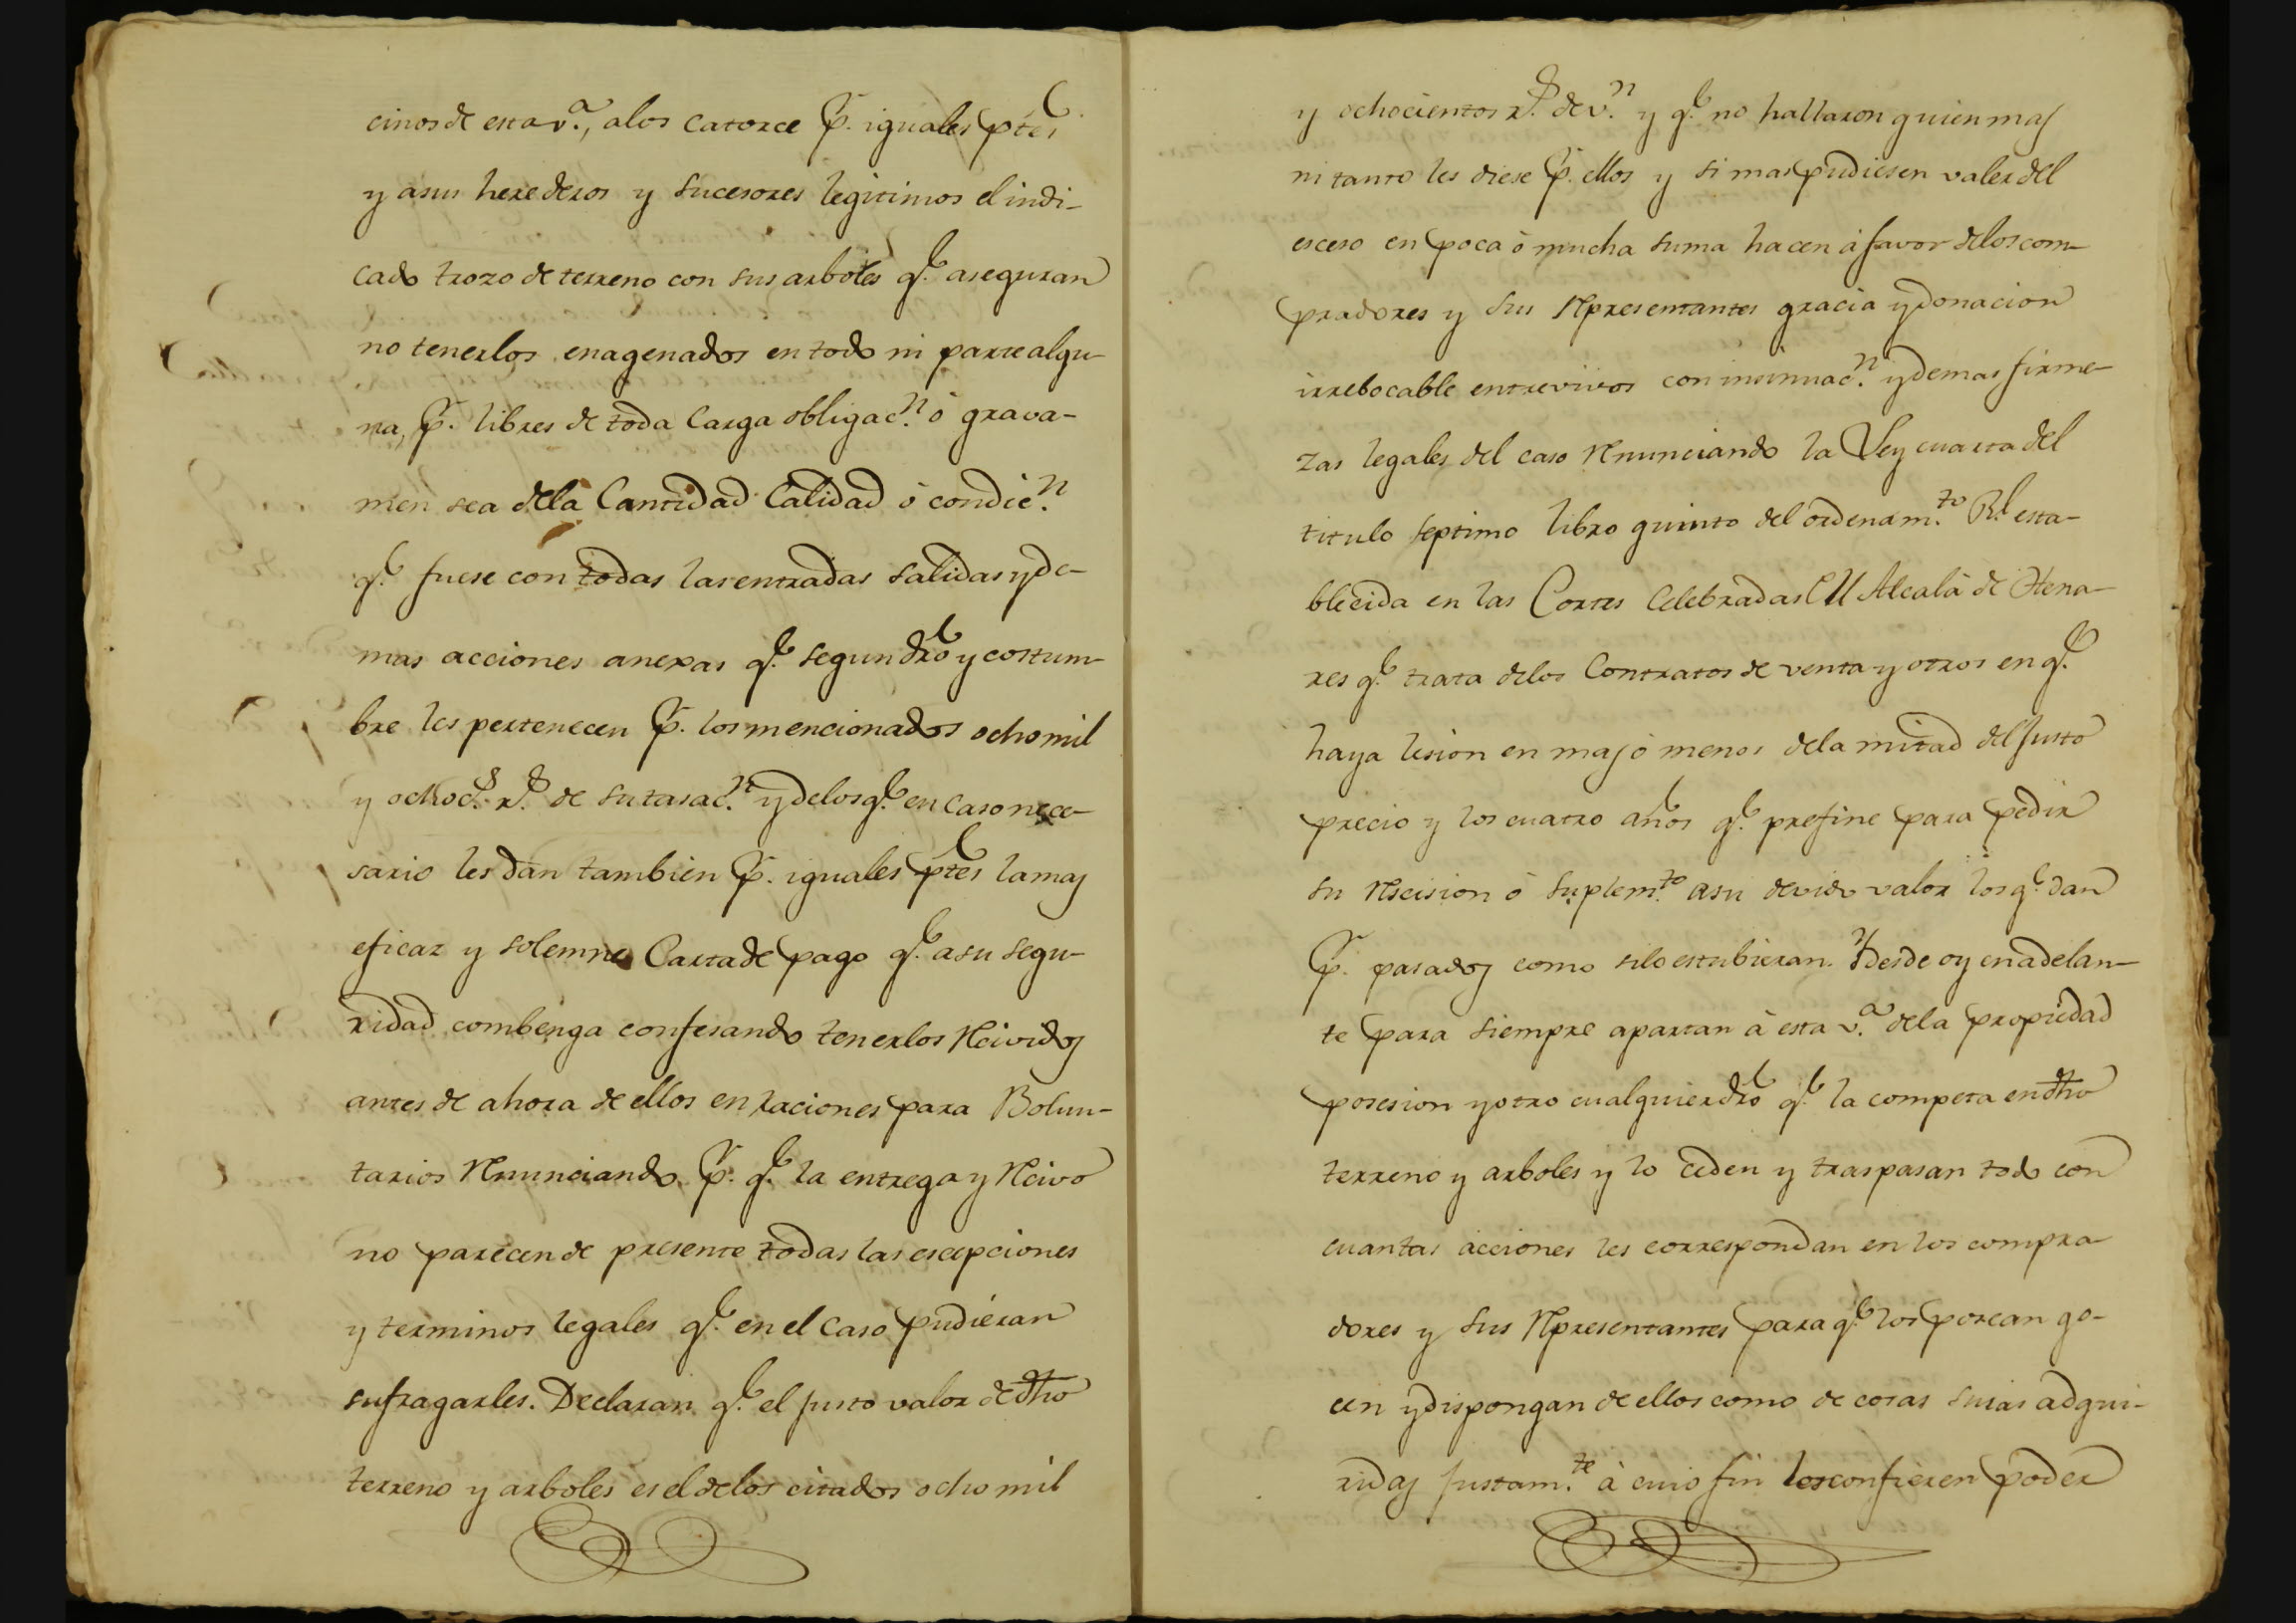 cinos de esta v.ª, a los catorce p.r iguales ptes
y a sus herederos y sucesores legitimos el indi-
cado trozo de terreno con sus arboles q.e aseguran
no tenerlos enagenados en todo ni parte algu-
na, p.r libres de toda Carga obligac.n ó grava-
men sea dela Cantidad Calidad ó condic.n
q.e fuese con todas las entradas salidas y de-
mas acciones anexas q.e segun dro y costum-
bre les pertenecen p.r los mencionados ocho mil
y ochoc.s r.s de su tasac.n y delos q.e en caso nece-
sario les dan tambien p.r iguales ptes la mas
eficaz y solemne Carta de pago q.e a su segu-
ridad combenga confesando tenerlos Rcividos
antes de ahora de ellos en raciones para Bolun-
tarios Rnunciando p.r q.e la entrega y Rcivo
no parecen de presente todas las escepciones
y terminos legales q.e en el caso pudieran
sufragarles. Declaran q.e el justo valor de dho
terreno y arboles es el delos citados ocho mil
y ochocientos r.s de v.n y q.e no hallaron quien mas
ni tanto les diese p.r ellos y si mas pudiesen valer del
esceso en poca ó mucha suma hacen á favor delos com-
pradores y sus Rpresentantes gracia y donacion
irrebocable entrevivos con insinuac.n y demas firme-
zas legales del caso Rnunciando la Ley cuarta del
titulo septimo libro quinto del ordenam.to R.l esta-
blecida en las Cortes Celebradas en Alcalá de Hena-
res q.e trata delos Contratos de venta y otros en q.e
haya lesion en mas ó menos dela mitad del justo
precio y los cuatro años q.e prefine para pedir
su Rscision ó suplem.to a su devido valor los q.e dan
p.r pasados como si lo estubieran. Y desde oy en adelan-
te para siempre apartan á esta v.ª dela propiedad
posesion y otro cualquier dro q.e la competa en dho
terreno y arboles y lo ceden y traspasan todo con
cuantas acciones les correspondan en los compra-
dores y sus Rpresentantes para q.e los posean go-
cen y dispongan de ellos como de cosas suias adqui-
ridas justam.te á cuio fin les confieren poder